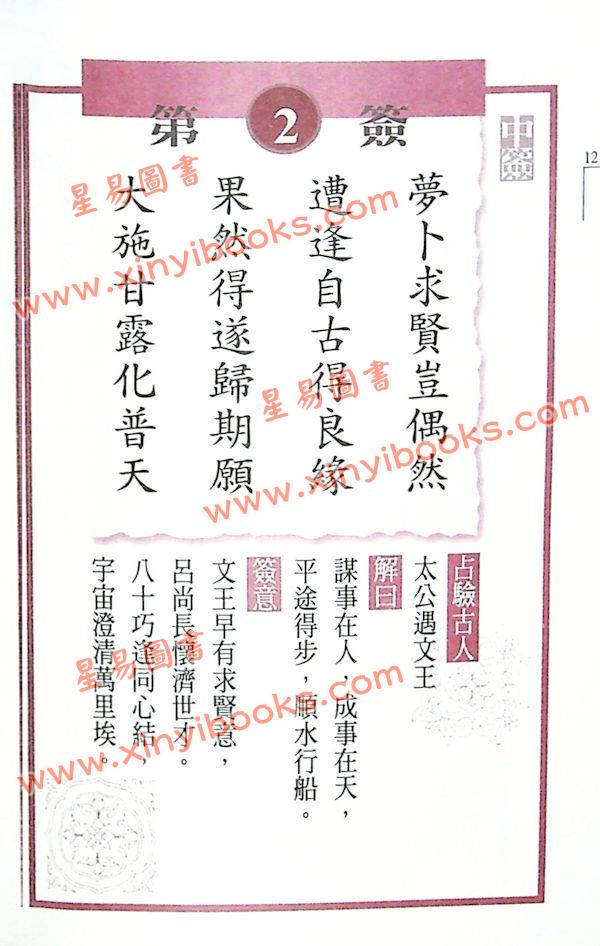 12
中簽
第 2 簽
夢卜求賢豈偶然
遭逢自古得良緣
果然得遂歸期願
大施甘露化普天
占驗古人
太公遇文王
解曰
謀事在人，成事在天，
平途得步，順水行船。
簽意
文王早有求賢意，
呂尚長懷濟世才。
八十巧逢同心結，
宇宙澄清萬里埃。
星易圖書
www.xinyibooks.com
星易圖書
www.xinyibooks.com
星易圖書
www.xinyibooks.com